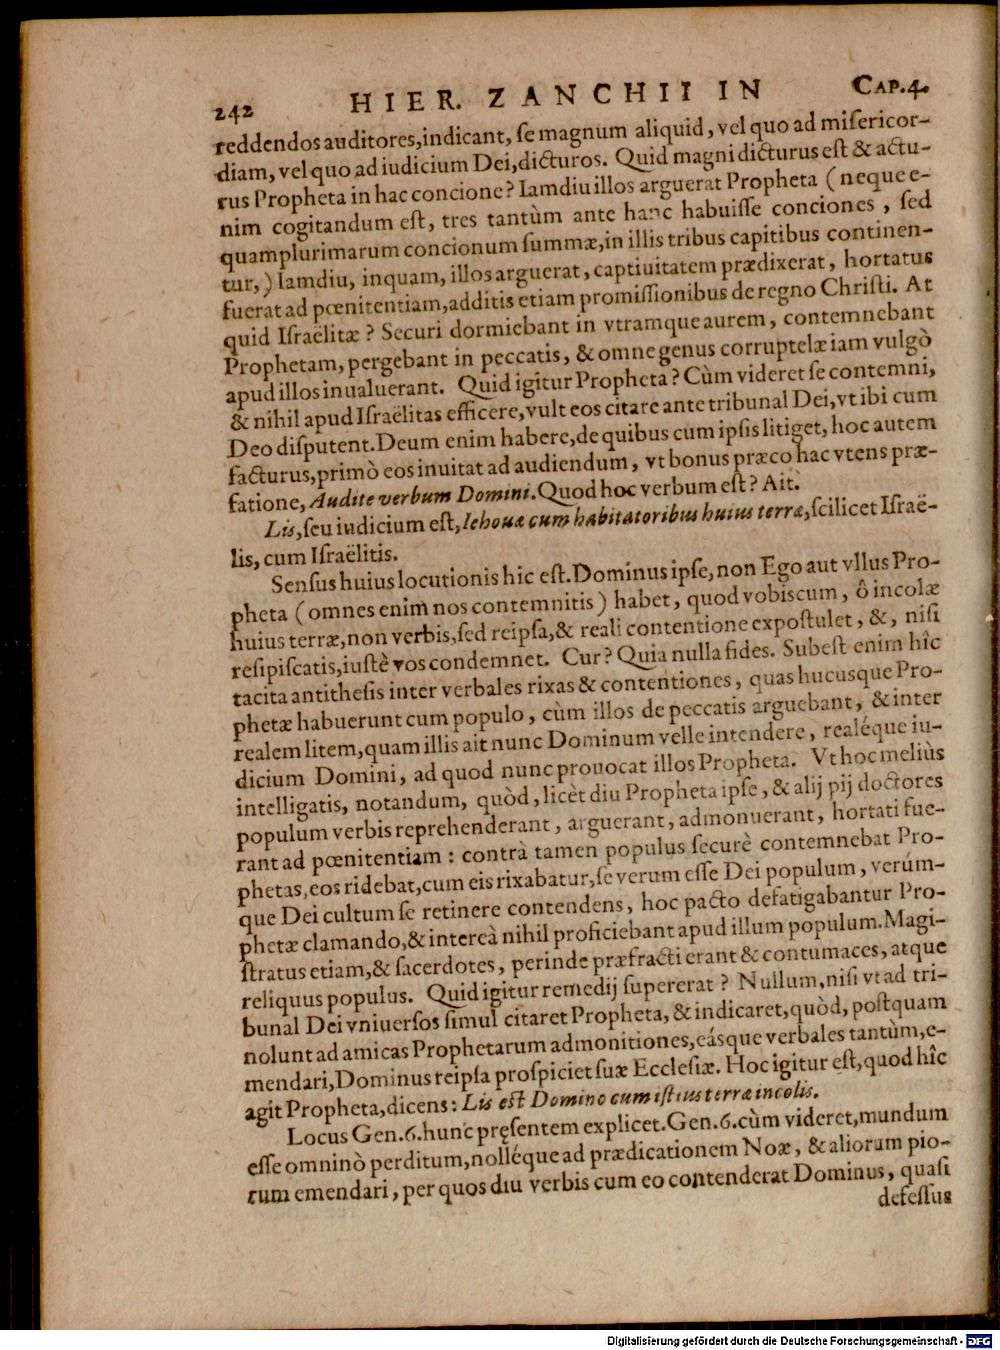 242 HIER. ZANCHII IN CAP.4.
reddendos auditores,indicant, ſe magnum aliquid, vel quo ad miſericor-
diam, vel quo ad iudicium Dei,dicturos. Quid magni dicturus eſt & actu-
rus Propheta in hac concione? Iamdiu illos arguerat Propheta (neque e-
nim cogitandum eſt, tres tantùm ante hanc habuiſſe conciones, ſed
quamplurimarum concionum ſummæ,in illis tribus capitibus continen-
tur,) Iamdiu, inquam, illos arguerat, captiuitatem prædixerat, hortatus
fuerat ad pœnitentiam,additis etiam promiſſionibus de regno Chriſti. At
quid Iſraëlitæ? Securi dormiebant in vtramque aurem, contemnebant
Prophetam, pergebant in peccatis, & omne genus corruptelæ iam vulgò
apud illos inualuerant. Quid igitur Propheta? Cùm videret ſe contemni,
& nihil apud Iſraëlitas efficere,vult eos citare ante tribunal Dei,vt ibi cum
Deo diſputent.Deum enim habere,de quibus cum ipſis litiget, hoc autem
facturus,primò eos inuitat ad audiendum, vt bonus præco hac vtens præ-
fatione, Audite verbum Domini. Quod hoc verbum eſt? Ait.
Lis,ſeu iudicium eſt,Iehouæ cum habitatoribus huius terræ,ſcilicet Iſraë-
lis, cum Iſraëlitis.
Senſus huius locutionis hic eſt.Dominus ipſe,non Ego aut vllus Pro-
pheta (omnes enim nos contemnitis) habet, quod vobiscum, ô incolæ
huius terræ,non verbis,ſed reipſa,& reali contentione expoſtulet, &, niſi
reſipiſcatis,iuſtè vos condemnet. Cur? Quia nulla fides. Subeſt enim hîc
tacita antitheſis inter verbales rixas & contentiones, quas hucusque Pro-
phetæ habuerunt cum populo, cùm illos de peccatis arguebant, & inter
realem litem,quam illis ait nunc Dominum velle intendere, realéque iu-
dicium Domini, ad quod nunc prouocat illos Propheta. Vt hoc meliùs
intelligatis, notandum, quòd, licèt diu Propheta ipſe, & alij pij doctores
populum verbis reprehenderant, arguerant, admonuerant, hortati fue-
rant ad pœnitentiam: contrà tamen populus ſecurè contemnebat Pro-
phetas,eos ridebat,cum eis rixabatur,ſe verum eſſe Dei populum, verúm-
que Dei cultum ſe retinere contendens, hoc pacto defatigabantur Pro-
phetæ clamando,& intereà nihil proficiebant apud illum populum. Magi-
ſtratus etiam,& ſacerdotes, perinde præfracti erant & contumaces, atque
reliquus populus. Quid igitur remedij ſupererat? Nullum,niſi vt ad tri-
bunal Dei vniuerſos ſimul citaret Propheta, & indicaret,quòd, poſtquam
nolunt ad amicas Prophetarum admonitiones,eásque verbales tantùm,e-
mendari,Dominus reipſa proſpiciet ſuæ Eccleſiæ. Hoc igitur eſt,quod hîc
agit Propheta,dicens: Lis eſt Domino cum iſtius terræ incolis.
Locus Gen.6.hunc pręſentem explicet.Gen.6.cùm videret,mundum
eſſe omninò perditum,nolléque ad prædicationem Noæ, & aliorum pio-
rum emendari, per quos diu verbis cum eo contenderat Dominus, quaſi
defeſſus
Digitalisierung gefördert durch die Deutsche Forschungsgemeinschaft - DFG